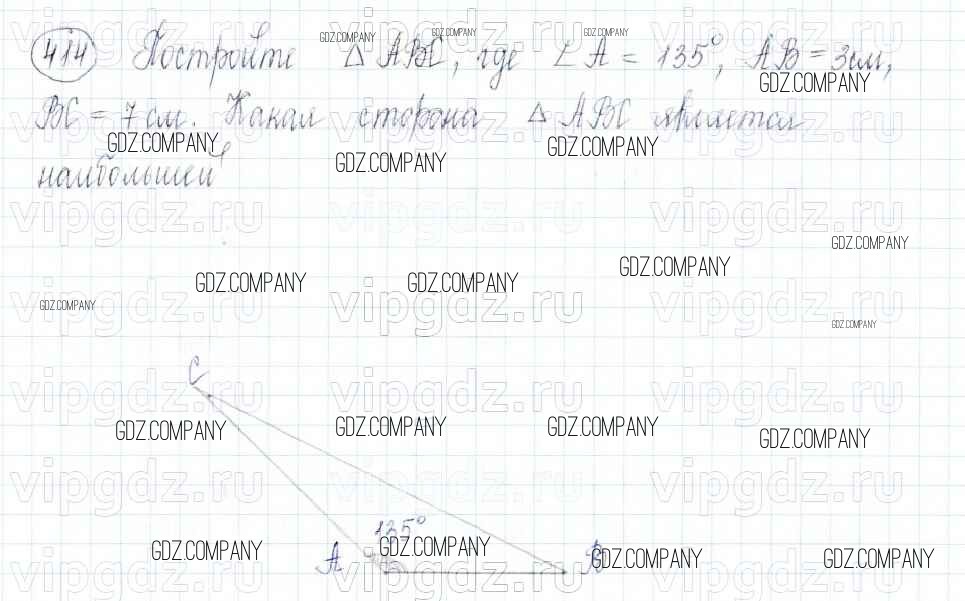 414 Постройте △ ABC, где ∠A = 135°, AB = 3см,
BC = 7 см. Какая сторона △ ABC является
наибольшей
GDZ.COMPANY GDZ.COMPANY GDZ.COMPANY
GDZ.COMPANY GDZ.COMPANY GDZ.COMPANY
vipgdz.ru vipgdz.ru vipgdz.ru
GDZ.COMPANY GDZ.COMPANY GDZ.COMPANY GDZ.COMPANY
GDZ.COMPANY vipgdz.ru vipgdz.ru vipgdz.ru GDZ.COMPANY
C
vipgdz.ru vipgdz.ru vipgdz.ru
GDZ.COMPANY GDZ.COMPANY GDZ.COMPANY GDZ.COMPANY
vipgdz.ru vipgdz.ru vipgdz.ru
135°
GDZ.COMPANY A GDZ.COMPANY B GDZ.COMPANY GDZ.COMPANY
vipgdz.ru vipgdz.ru vipgdz.ru